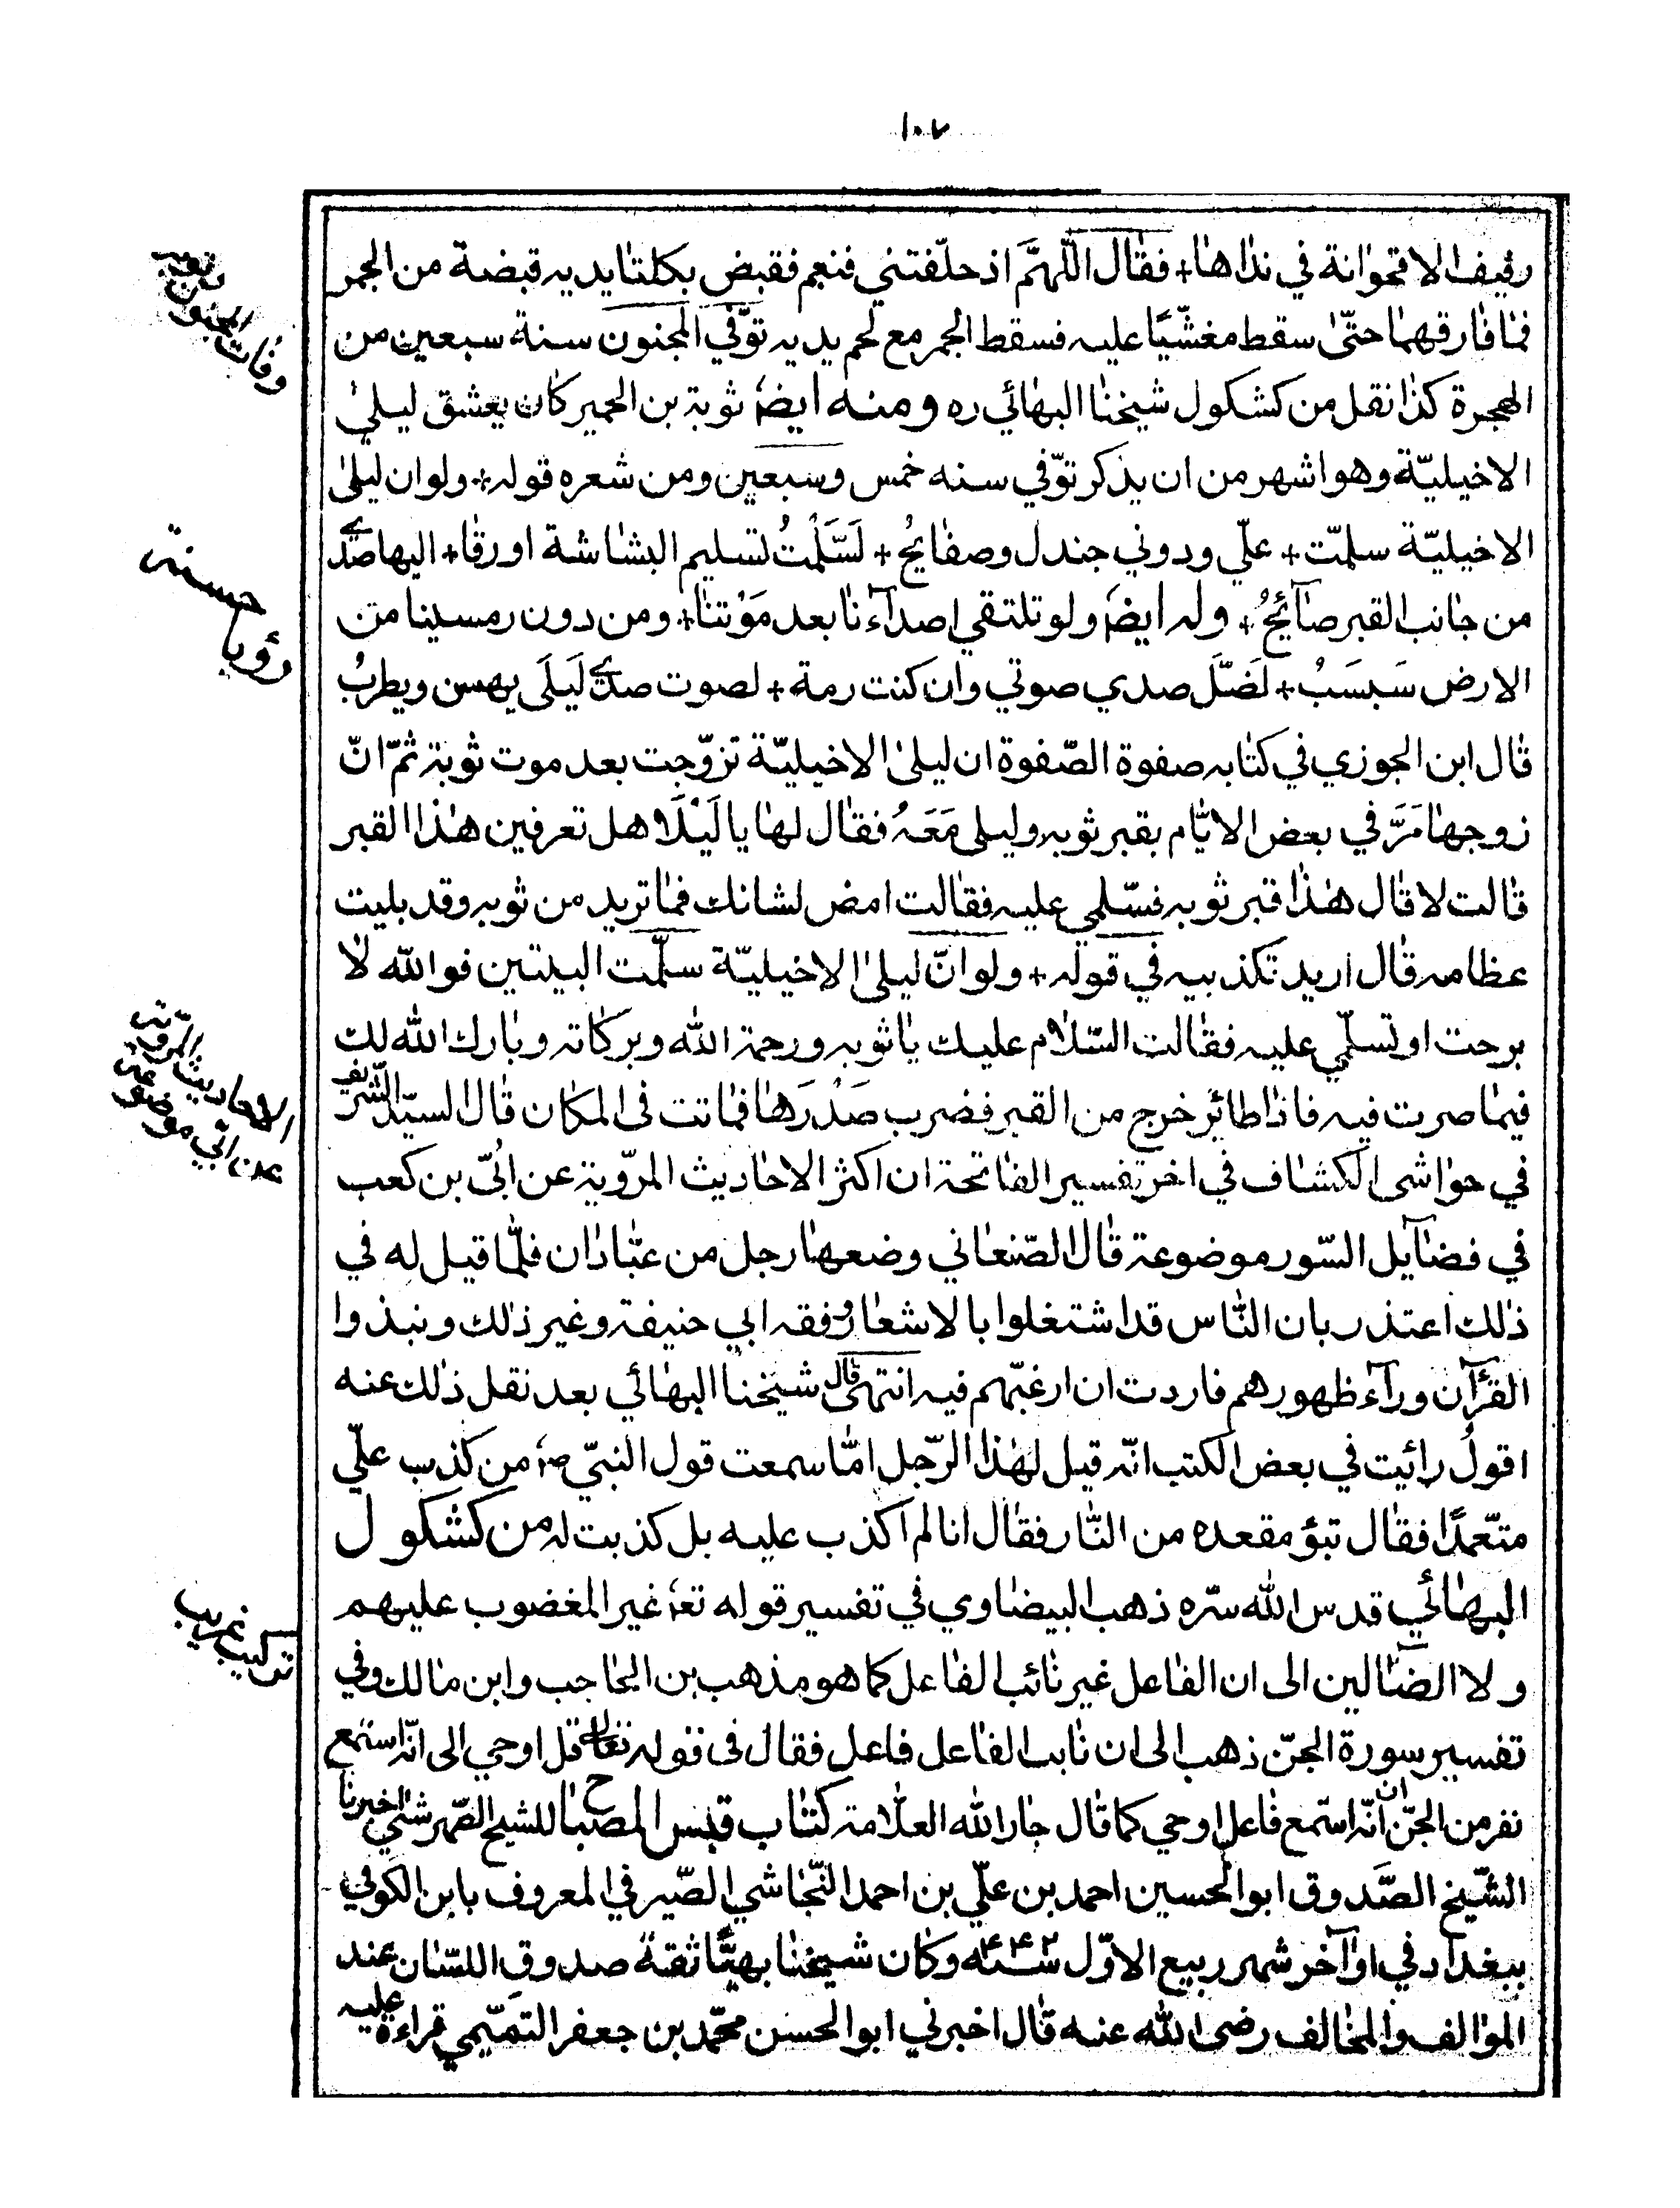 ١٠٧
رفيف الاقحوانة في نداها + فقال اللهمّ اذ حلّفتني فنعم فقبض بكلتا يديه قبضة من الجمر
فما فارقهما حتّى سقط مغشّيًا عليه فسقط الجمر مع لحم يديه توّفي المجنون سنة سبعين من
الهجرة كذا نقل من كشكول شيخنا البهائي ره ومنه ايضا ثوبة بن الحمير كان يعشق ليلى
الاخيليّة وهو اشهر من ان يذكر توّفي سنه خمس وسبعين ومن شعره قوله + ولو ان ليلى
الاخيليّة سلمّت + علّي ودوني جندل وصفايحُ + لَسَّلَمْتُ تسليم البشاشة او رقا + اليها صدى
من جانب القبر صآئحُ + وله ايضا ولو تلتقي اصدآءنا بعد مَوْتنا + ومن دون رمسينا من
الارض سَبسَبُ + لَضَّلَ صدي صوتي وان كنت رمة + لصوت صدى لَيلَى يهسن ويطربُ
قال ابن الجوزي في كتابه صفوة الصّفوة ان ليلى الاخيليّة تزوّجت بعد موت ثوبة ثمّ انّ
زوجها مَرَّ في بعض الايّام بقبر ثوبه وليلى مَعَهُ فقال لها يا لَيْلَا هل تعرفين هذا القبر
قالت لا قال هذا قبر ثوبه فسّلمي عليه فقالت امض لشانك فما تريد من ثوبه وقد بليت
عظامه قال اريد تكذبيه في قوله + ولو انّ ليلى الاخيليّة سلّمت البيتين فوالله لا
برحت او تسلّمي عليه فقالت السّلام عليك يا ثوبه ورحمة الله وبركاته وبارك الله لك
فيما صرت فيه فاذا طائر خرج من القبر فضرب صَدْرَها فماتت في المكان قال السيّد الشريف
في حواشي الكشاف في اخر تفسير الفاتحة ان اكثر الاحاديث المرّوية عن ابُيّ بن كعب
في فضآيل السّور موضوعة قال الصّنعاني وضعها رجل من عبّادان فلمّا قيل له في
ذلك اعتذر بان النّاس قد اشتغلوا بالاشعار وفقه ابي حنيفة وغير ذلك ونبذوا
القرآن ورآء ظهورهم فاردت ان ارغبّهم فيه انتهى قال شيخنا البهائي بعد نقل ذلك عنه
اقول رائيت في بعض الكتب انّه قيل لهذا الرّجل امّا سمعت قول النبيّ ص من كذب علّي
متعّمدًا فقال تبؤ مقعده من النّار فقال انا لم اكذب عليه بل كذبت له من كشكول
البهائي قدس الله سرّه ذهب البيضاوي في تفسير قوله تع غير المغضوب عليهم
ولا الضّالين الى ان الفاعل غير نائب الفاعل كما هو مذهب بن الحاجب وابن مالك وفي
تفسير سورة الجنّ ذهب الى ان نايب الفاعل فاعل فقال في قوله تعالى قل اوحي الى انّه استمع
نفر من الجنّ ان انّه استمع فاعل اوحي كما قال جار الله العلّامة كتاب قبس المصباح للشيخ الصّهرشتي اخبرنا
الشّيخ الصَّدوق ابو الحسين احمد بن علّي بن احمد النّجاشي الصّيرفي المعروف بابن الكوفي
ببغداد في اوآخر شهر ربيع الاوّل سنة ٤٤٢ وكان شيخنا بهيًّا ثقة صدوق اللسّان عند
الموالف والمخالف رضي الله عنه قال اخبرني ابو الحسن محمّد بن جعفر التميّمي قراءة عليه
وفات المجنون
رؤيا حسنة
الاحاديث المروّية
عن ابّي موضوعة
تركيب غريب